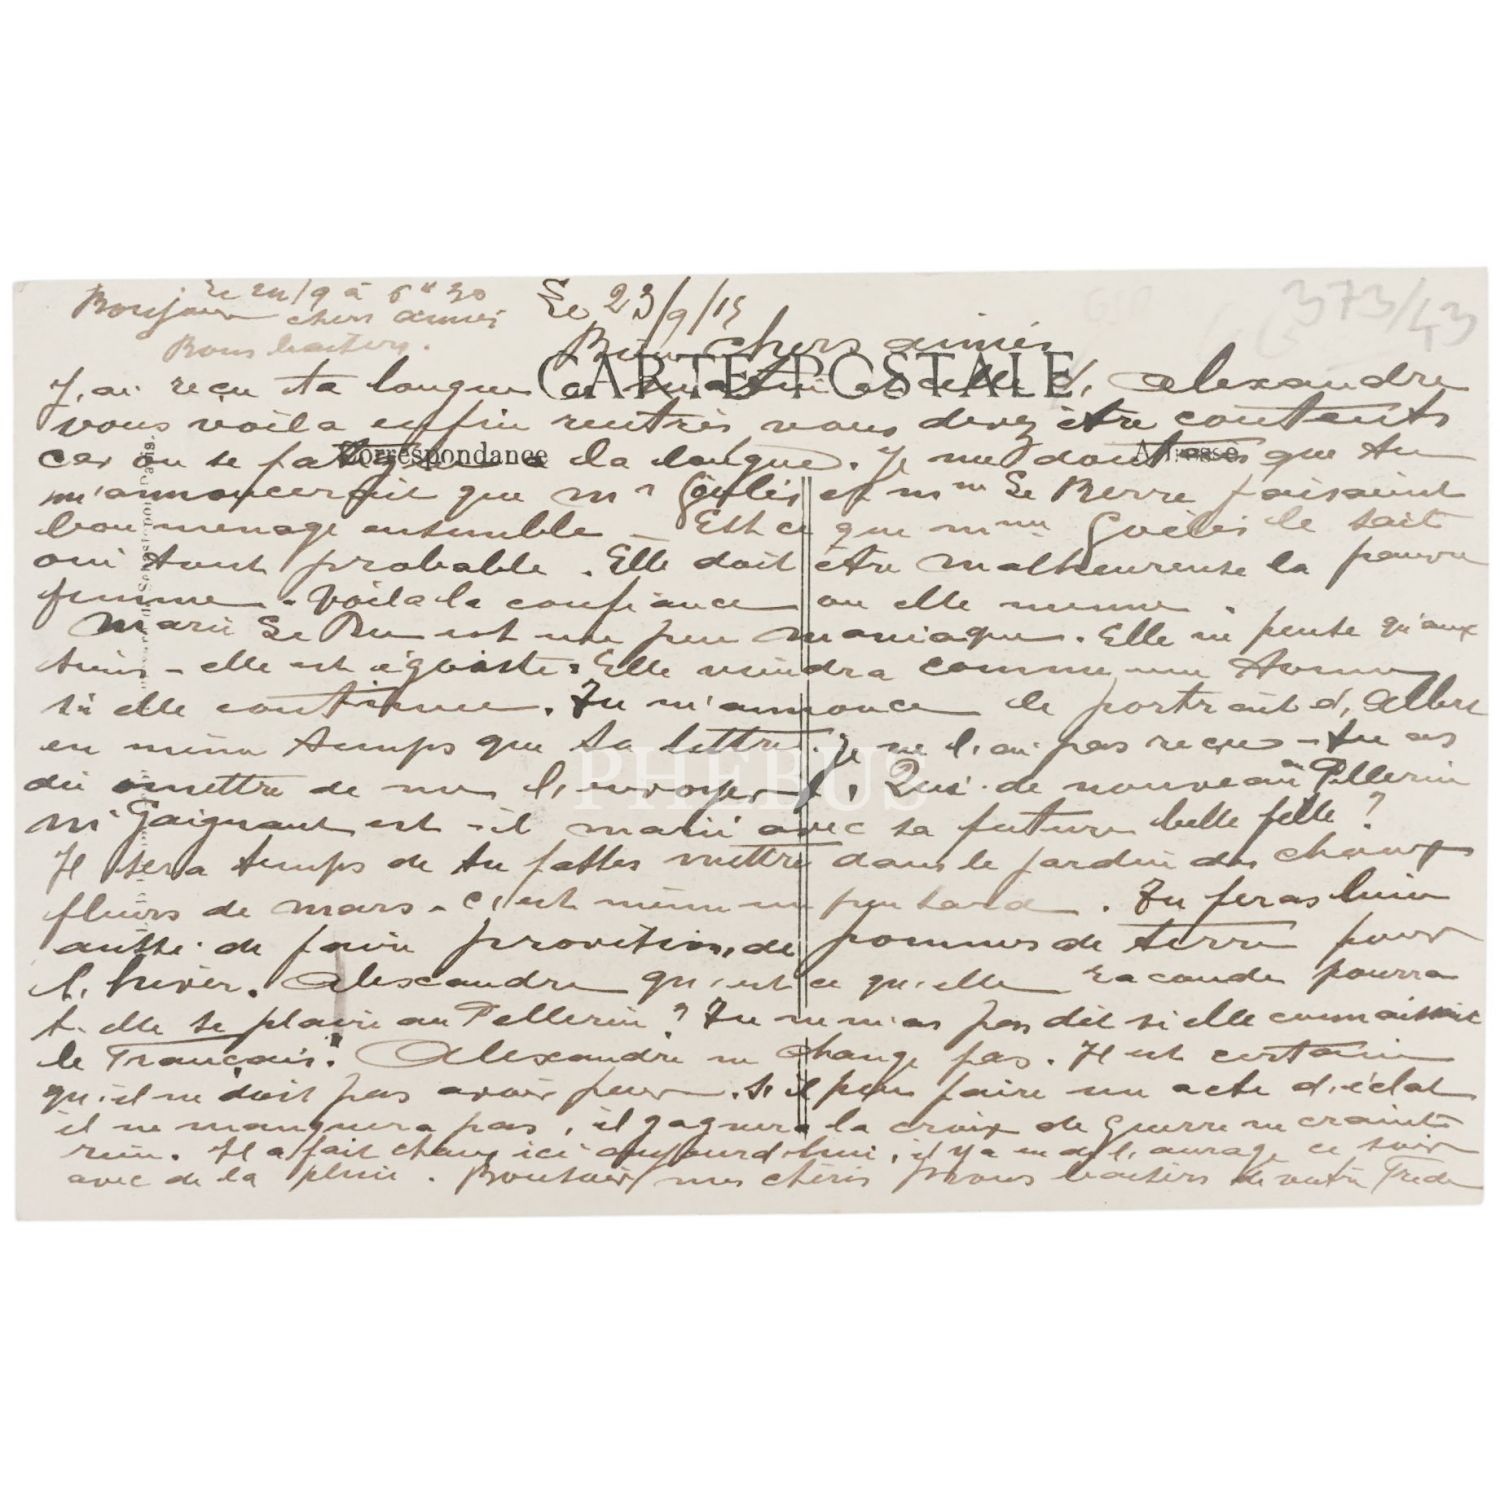 Le 24/9 à 6h30
Bonjour chers aimés
Bons baisers.
Le 23/9/15
373/43
Bien chers aimés
CARTE POSTALE
J'ai reçu ta longue ce matin et celle d'Alexandre
vous voila enfin rentrés vous devez être contents
Correspondance
Adresse
car on se fatigue à la longue. Je me doutais que tu
m'annoncerait que Mr Goëlès et Mme Le Berre faisaient
bon menage ensemble - Est ce que Mme Goëlès le sait
oui tout probable. Elle doit être malheureuse la pauvre
femme. Voila la confiance ou elle menne.
Marie Le Ru est une peu maniaque. Elle ne pense qu'aux
siens - elle est égoiste. Elle viendra comme une
si elle continue. Tu m'annonce le portrait d'Albert
en même temps que ta lettre. Je ne l'ai pas reçu - tu as
dû omettre de me l'envoyer. Quoi de nouveau au Pellerin
Mr Gaignant est-il marié avec sa future belle fille?
Il sera temps de tu fasses mettre dans le jardin des choux
fleurs de mars - c'est même un peu tard. Tu feras bien
aussi de faire provision de pommes de terre pour
l'hiver. Alexandre qu'est ce qu'elle racconde pourra
t-elle se plaire au Pellerin? Tu ne m'as pas dit si elle connaissait
le Français. Alexandre ne change pas. Il est certain
qu'il ne doit pas avoir peur. S'il peu faire un acte d'éclat
il ne manquera pas, il gagnera la croix de Guerre ne crainte
rien. Il a fait chaud ici aujourd'hui, il y a eu de l'aurage ce soir
avec de la pluie. Bonsoir mes chéris Bons baisers de votre Frede
PHEBUS